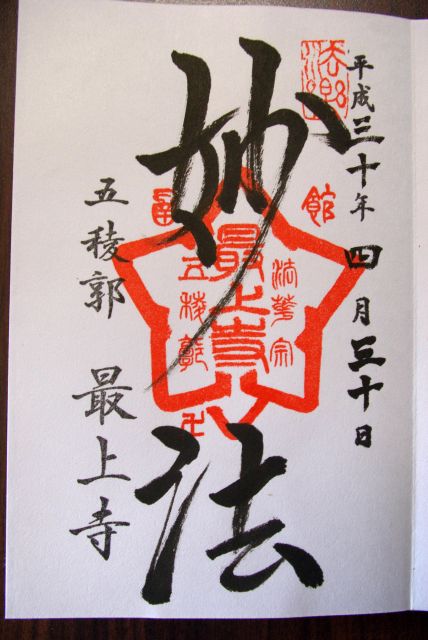 平成三十年 四月三十日
妙法
五稜郭 最上寺
館
法華宗
最上寺
五稜郭